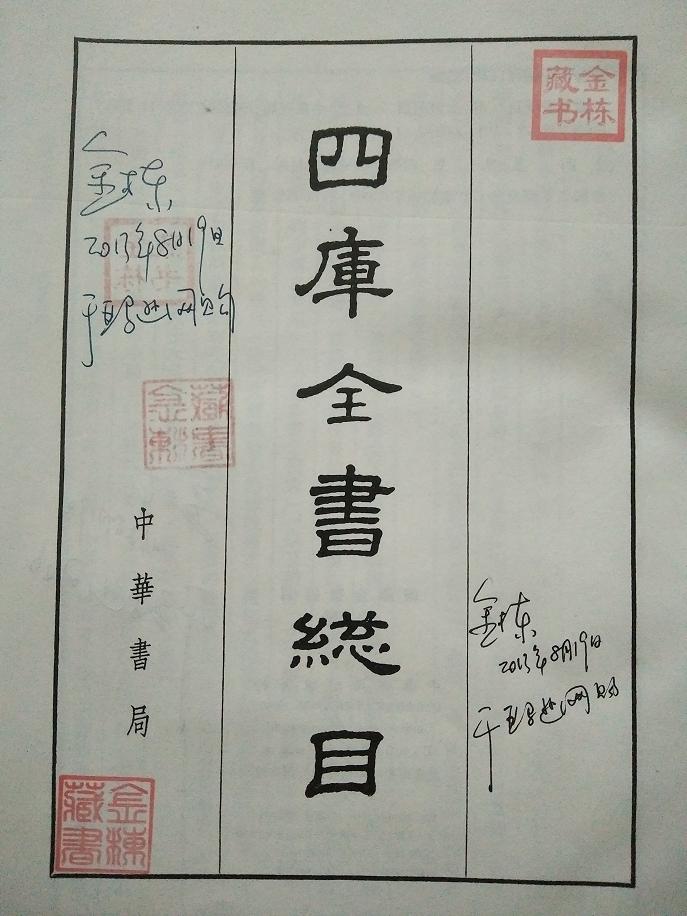 金栋
藏书
四庫全書総目
金栋
2013年8月19日
于亚马逊网购
金栋
2013年8月19日
于亚马逊网购
藏書
金棟
中華書局
金棟
藏書